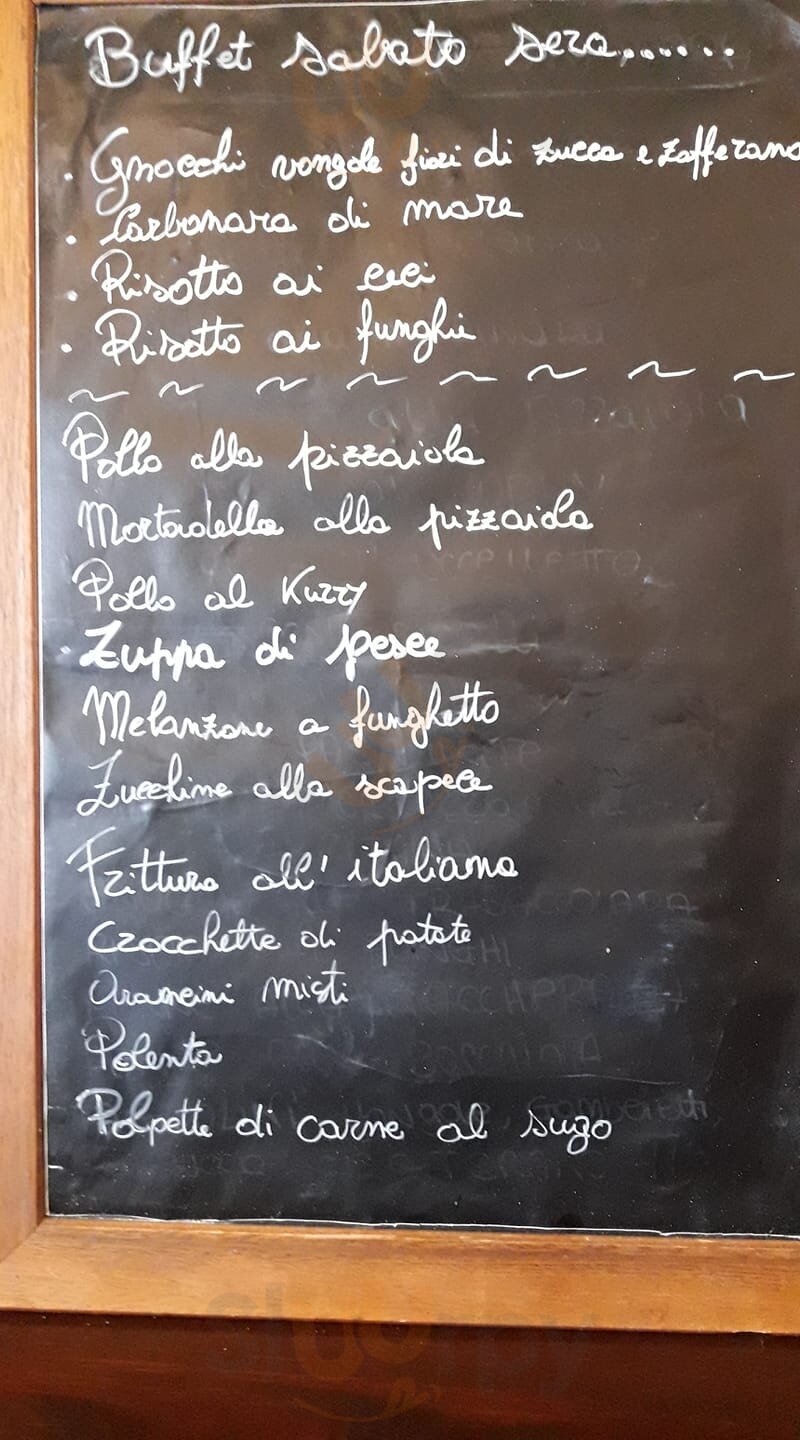 Buffet sabato sera......
. Gnocchi vongole fiori di zucca e zafferano
. Carbonara di mare
. Risotto ai ceci
. Risotto ai funghi
~ ~ ~ ~ ~ ~ ~ ~
Pollo alla pizzaiola
Mortadella alla pizzaiola
Pollo al Kurry
. Zuppa di pesce
Melanzane a funghetto
Zucchine alla scapece
Frittura all'italiana
Crocchette di patate
Arancini misti
Polenta
Polpette di carne al sugo
sluurpy